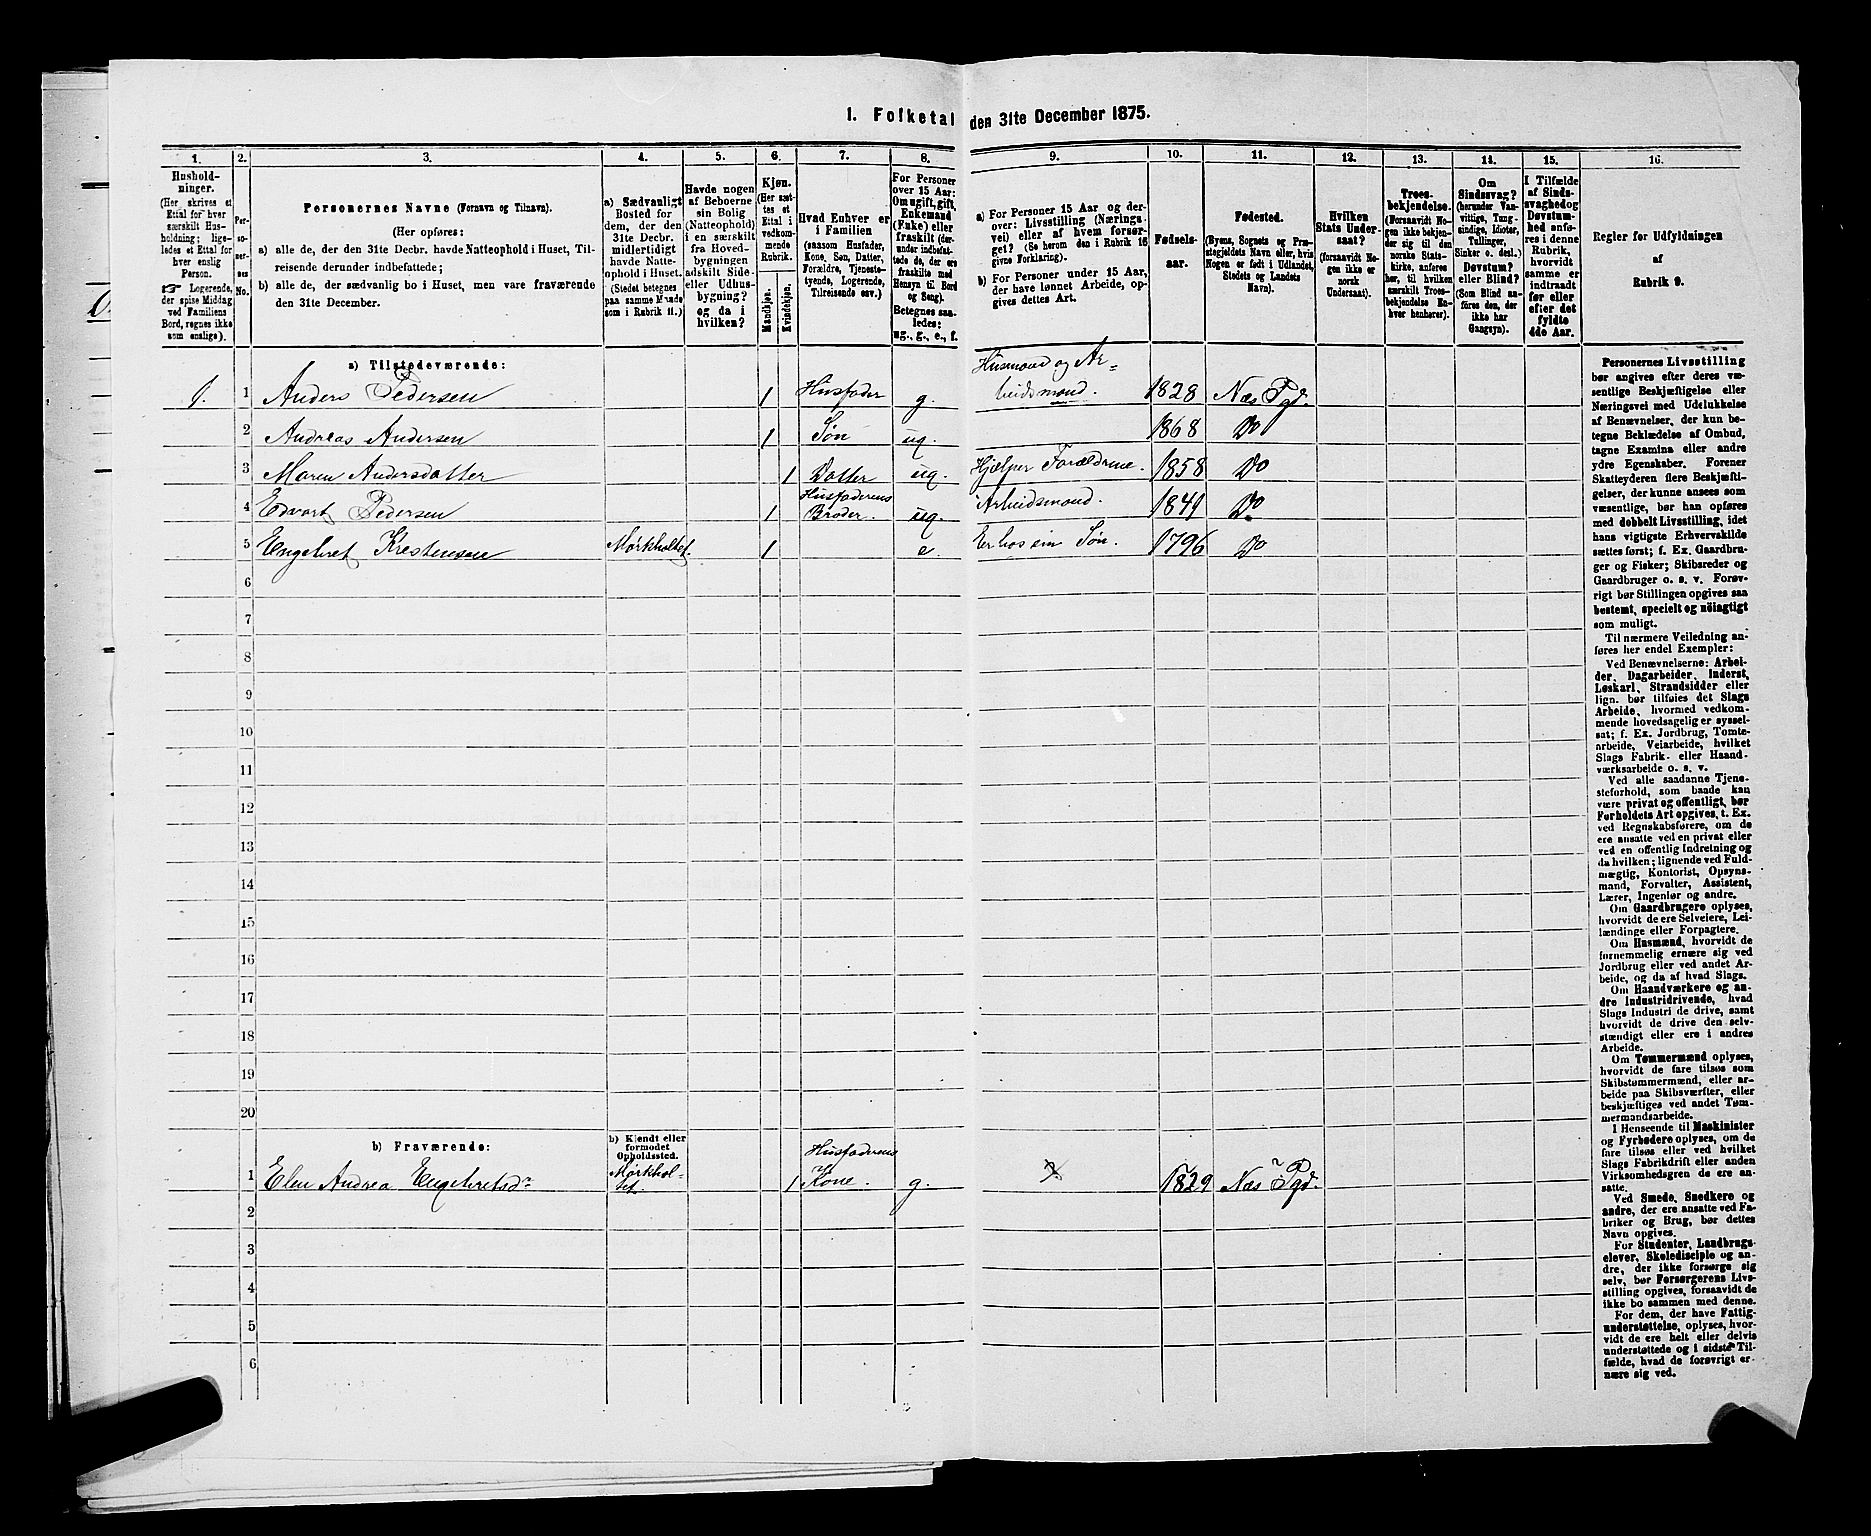 1. Folketal den 31te December 1875.
1.
2.
3.
4.
5.
6.
7.
8.
9.
10.
11.
12.
13.
14.
15.
16.
Hushold-
ninger.
(Her skrives et
Ettal for hver
særskilt Hus-
holdning; lige-
ledes et Ettal for
hver enslig
Person.
☞ Logerende,
der spise Middag
ved Familiens
Bord, regnes ikke
som enslige).
Per-
so-
ner-
nes
No.
Personernes Navne (Fornavn og Tilnavn).
(Her opføres:
a) alle de, der den 31te Decbr. havde Natteophold i Huset, Til-
reisende derunder indbefattede;
b) alle de, der sædvanlig bo i Huset, men vare fraværende
den 31te December.
a) Sædvanligt
Bosted for
dem, der den
31te Decbr.
midlertidigt
havde Natte-
ophold i Huset.
(Stedet betegnes
paa samme Maade
som i Rubrik 11.)
Havde nogen
af Beboerne
sin Bolig
(Natteophold)
i en særskilt
fra Hoved-
bygningen
adskilt Side-
eller Udhus-
bygning?
og da i
hvilken?
Kjøn.
(Her sæt-
tes et
Ettal i
vedkom-
mende
Rubrik.
Mandkjøn.
Kvindekjøn.
Hvad Enhver er
i Familien
(saasom Husfader,
Kone, Søn, Datter,
Forældre, Tjeneste-
tyende, Logerende,
Tilreisende osv.)
For Personer
over 15 Aar:
Om ugift, gift,
Enkemand
(Enke) eller
fraskilt (der-
under indbefat-
tede de, der ere
fraskilte med
Hensyn til Bord
og Seng).
Betegnes saa-
ledes:
ug., g., e., f.
a) For Personer 15 Aar og der-
over: Livsstilling (Nærings-
vei) eller af hvem forsør-
get? (Se herom den i Rubrik 16
givne Forklaring).
b) For Personer under 15 Aar,
der have lønnet Arbeide, op-
gives dettes Art.
Fødsels-
aar.
Fødested.
(Byens, Sognets og Præ-
stegjeldets Navn eller, hvis
Nogen er født i Udlandet,
Stedets og Landets
Navn).
Hvilken
Stats Under-
saat?
(forsaavidt No-
gen ikke er
norsk
Undersaat).
Troes-
bekjendelse.
(Forsaavidt No-
gen ikke bekjen-
der sig til den
norske Stats-
kirke, anføres
her, til hvilken
særskilt Troes-
bekjendelse En-
hver henhører).
Om
Sindssvag?
(herunder Van-
vittige, Tung-
sindige, Idioter,
Tullinger,
Sinker o. desl.)
Døvstum?
eller Blind?
(Som Blind an-
føres den, der
ikke har
Gangsyn).
I Tilfælde
af Sinds-
svaghed og
Døvstum-
hed anfø-
res i denne
Rubrik,
hvorvidt
samme er
indtraadt
før eller
efter det
fyldte
4de Aar.
Regler for Udfyldningen
af
Rubrik 9.
a) Tilstedeværende:
1. 1 Anders Pedersen 1 Husfader g. Husmand og Ar=
beidsmand. 1828 Næs Pgd.
2 Andreas Andersen 1 Søn ug. 1868 Do
3 Maren Andersdatter 1 Datter ug. Hjælper Forældrene. 1858 Do
4 Edvart Pedersen 1 Husfaderens
Broder. ug. Arbeidsmand. 1841 Do
5 Engebret Krestensen Mørkholtet. 1 e. Er hos sin Søn. 1796 Do
6
7
8
9
10
11
12
13
14
15
16
17
18
19
20
b) Fraværende:
b) Kjendt eller
formodet
Opholdssted.
1 Elen Andrea Engebretsdr Mørkhol-
tet. 1 Husfaderens
Kone. g. 1829 Næs Pgd.
2
3
4
5
6
Personernes Livsstilling
bør angives efter deres væ-
sentlige Beskjæftigelse eller
Næringsvei med Udelukkelse
af Benævnelser, der kun be-
tegne Beklædelse af Ombud,
tagne Examina eller andre
ydre Egenskaber. Forener
Skatteyderen flere Beskjæfti-
gelser, der kunne ansees som
væsentlige, bør han opføres
med dobbelt Livsstilling, idet
hans vigtigste Erhvervskilde
sættes først; f. Ex. Gaardbru-
ger og Fisker; Skibsreder og
Gaardbruger o. s. v. Forøv-
rigt bør Stillingen opgives saa
bestemt, specielt og nöiagtigt
som muligt.
Til nærmere Veiledning an-
føres her endel Exempler:
Ved Benævnelserne: Arbei-
der, Dagarbeider, Inderst,
Løskarl, Strandsidder eller
lign. bør tilføies det Slags
Arbeide, hvormed vedkom-
mende hovedsagelig er syssel-
sat; f. Ex. Jordbrug, Tomte-
arbeide, Veiarbeide, hvilket
Slags Fabrik- eller Haand-
værksarbeide o. s. v.
Ved alle saadanne Tjene-
steforhold, som baade kan
være privat og offentligt, bør
Forholdets Art opgives, t. Ex.
ved Regnskabsførere, om de
ere ansatte ved en privat eller
ved en offentlig Indretning og
da hvilken; lignende ved Fuld-
mægtig, Kontorist, Opsyns-
mand, Forvalter, Assistent,
Lærer, Ingeniør og andre.
Om Gaardbrugere oplyses,
hvorvidt de ere Selveiere, Lei-
lændinge eller Forpagtere.
Om Husmænd, hvorvidt de
fornemmelig ernære sig ved
Jordbrug eller ved andet Ar-
beide, og da af hvad Slags.
Om Haandværkere og an-
dre Industridrivende, hvad
Slags Industri de drive, samt
hvorvidt de drive den selv-
stændigt eller ere i andres
Arbeide.
Om Tømmermænd oplyses,
hvorvidt de fare tilsøs som
Skibstømmermænd, eller ar-
beide paa Skibsværfter, eller
beskjæftiges ved andet Tøm-
mermandsarbeide.
I Henseende til Maskinister
og Fyrbødere oplyses, om de
fare tilsøs eller ved hvilket
Slags Fabrikdrift eller anden
Virksomhedsgren de ere an-
satte.
Ved Smede, Snedkere og
andre, der ere ansatte ved Fa-
briker og Brug, bør dettes
Navn opgives.
For Studenter, Landbrugs-
elever, Skoledisciple og an-
dre, der ikke forsørge sig
selv, bør Forsørgerens Livs-
stilling opgives, forsaavidt de
ikke bo sammen med denne.
For dem, der have Fattig-
understøttelse, oplyses, hvor-
vidt de ere helt eller delvis
understøttede og i sidste Til-
fælde, hvad de forøvrigt er-
nære sig ved.